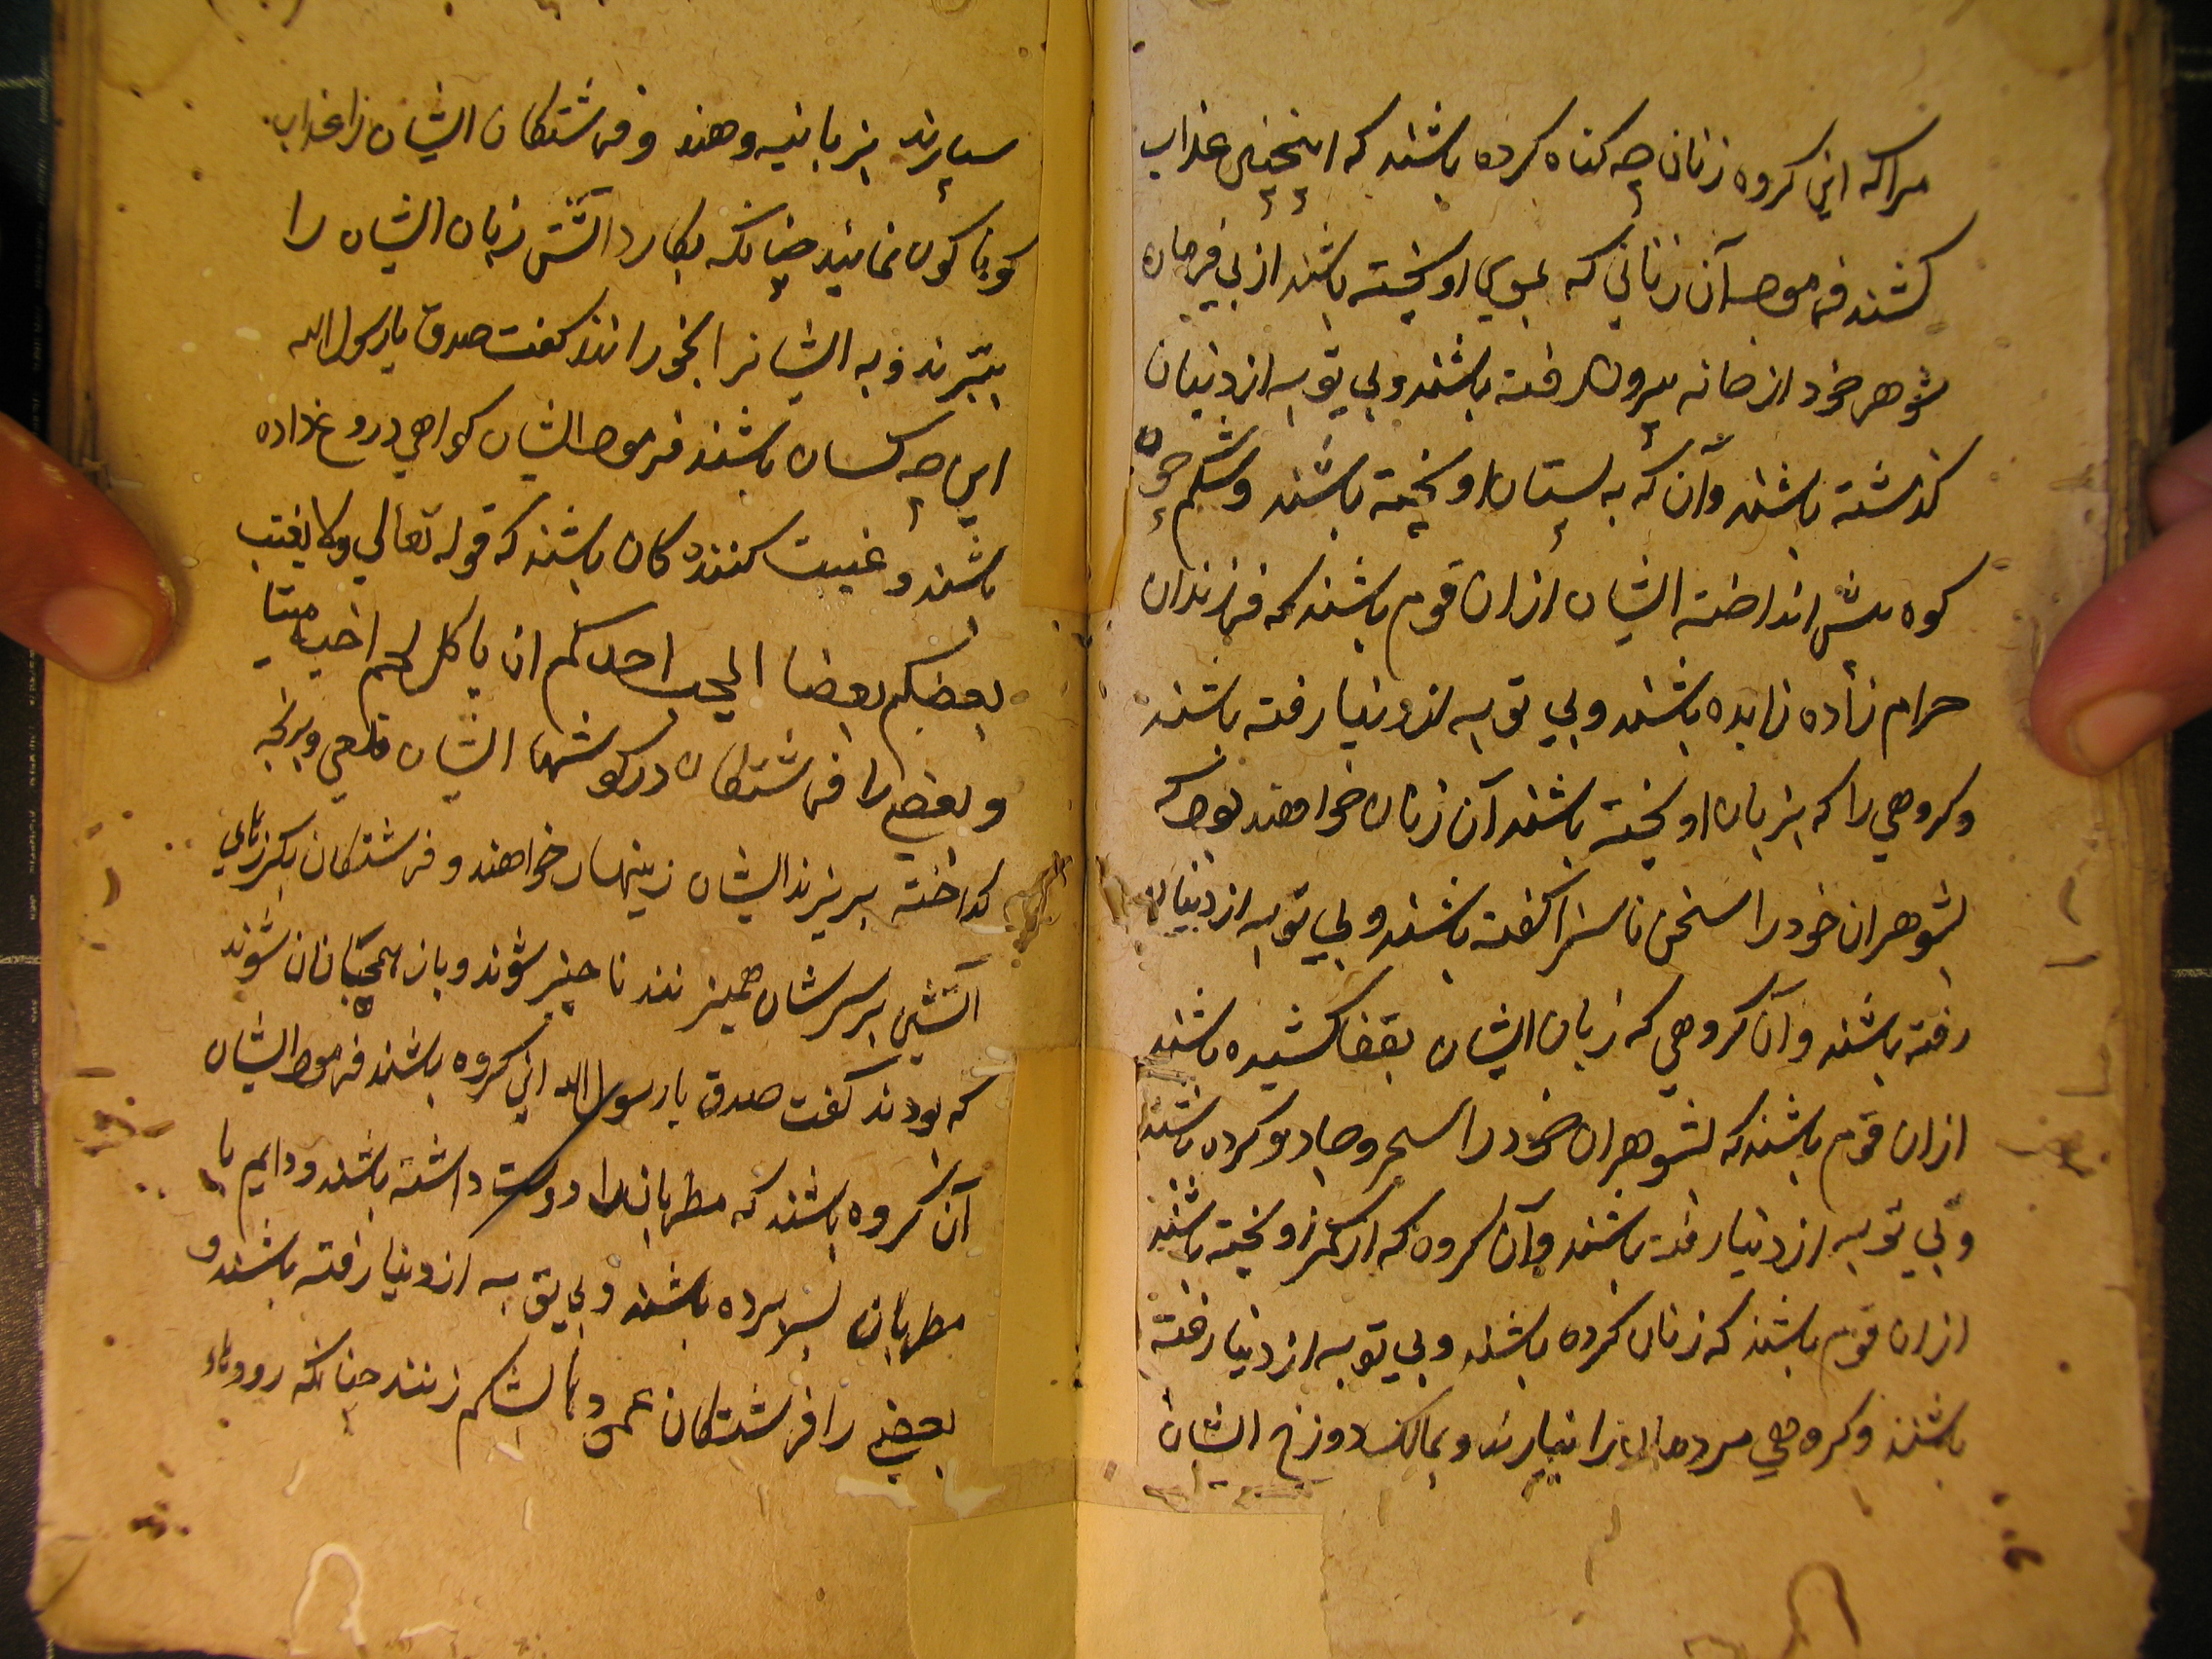 مرا که این کروه زنان چه کناه کرده باشند که اینچنین عذاب
کشند فرمود آن زنانی که بموی اویخته باشند از بی فرمان
شوهر خود از خانه بیرون رفته باشند و بی توبه از دنیان
کذشته باشند و آن که به پستان اویخته باشند و شکم چون
کوه پیش انداخته ایشان ازان قوم باشند که فرزندان
حرام زاده زایده باشند و بی توبه از دنیا رفته باشند
و کروهی را که بزبان اویخته باشند آن زنان خواهند بود که
بشوهران خود را سخن ناسزا کفته باشند و بی توبه از دنیان
رفته باشند و آن کروهی که زبان ایشان بقفا کشیده باشند
ازان قوم باشند که بشوهران خود را سحر و جادو کرده باشند
و بی توبه از دنیا رفته باشند و آن کروه که از کمر اویخته باشند
ازان قوم باشند که زنان کرده باشند و بی توبه از دنیا رفته
باشند و کروهی مردمان را بیارند و بمالک دوزخ ایشان
سپارند بزبانیه وهند و فرشتکان ایشان را عذاب
کوناکون نمایند چنانکه بکارد آتشی زبان ایشان را
ببرند و به ایشانرا بخورانند کفت صدق یا رسول الله
این چه کسان باشند فرمود ایشان کواهی دروغ داده
باشند و غیبت کننده کان باشند که قوله تعالی ولا یغتب
بعضکم بعضا ایحب احدکم ان یاکل لحم اخیه میتا
و بعضی را فرشتکان در کوشها ایشان قلعی و برنج
کداخته بریزند ایشان زینهار خواهند و فرشتکان بکرزهای
آتشی بر سرشان همیزنند ناچیز شوند و باز همچنان شوند
که بودند کفت صدق یا رسول الله این کروه باشند فرمود ایشان
آن کروه باشند که مطربان را دوست داشته باشند و دایم با
مطربان بسر برده باشند و بی توبه از دنیا رفته باشند و
بعضی را فرشتکان عمود بر شکم زنند چنانکه رودها